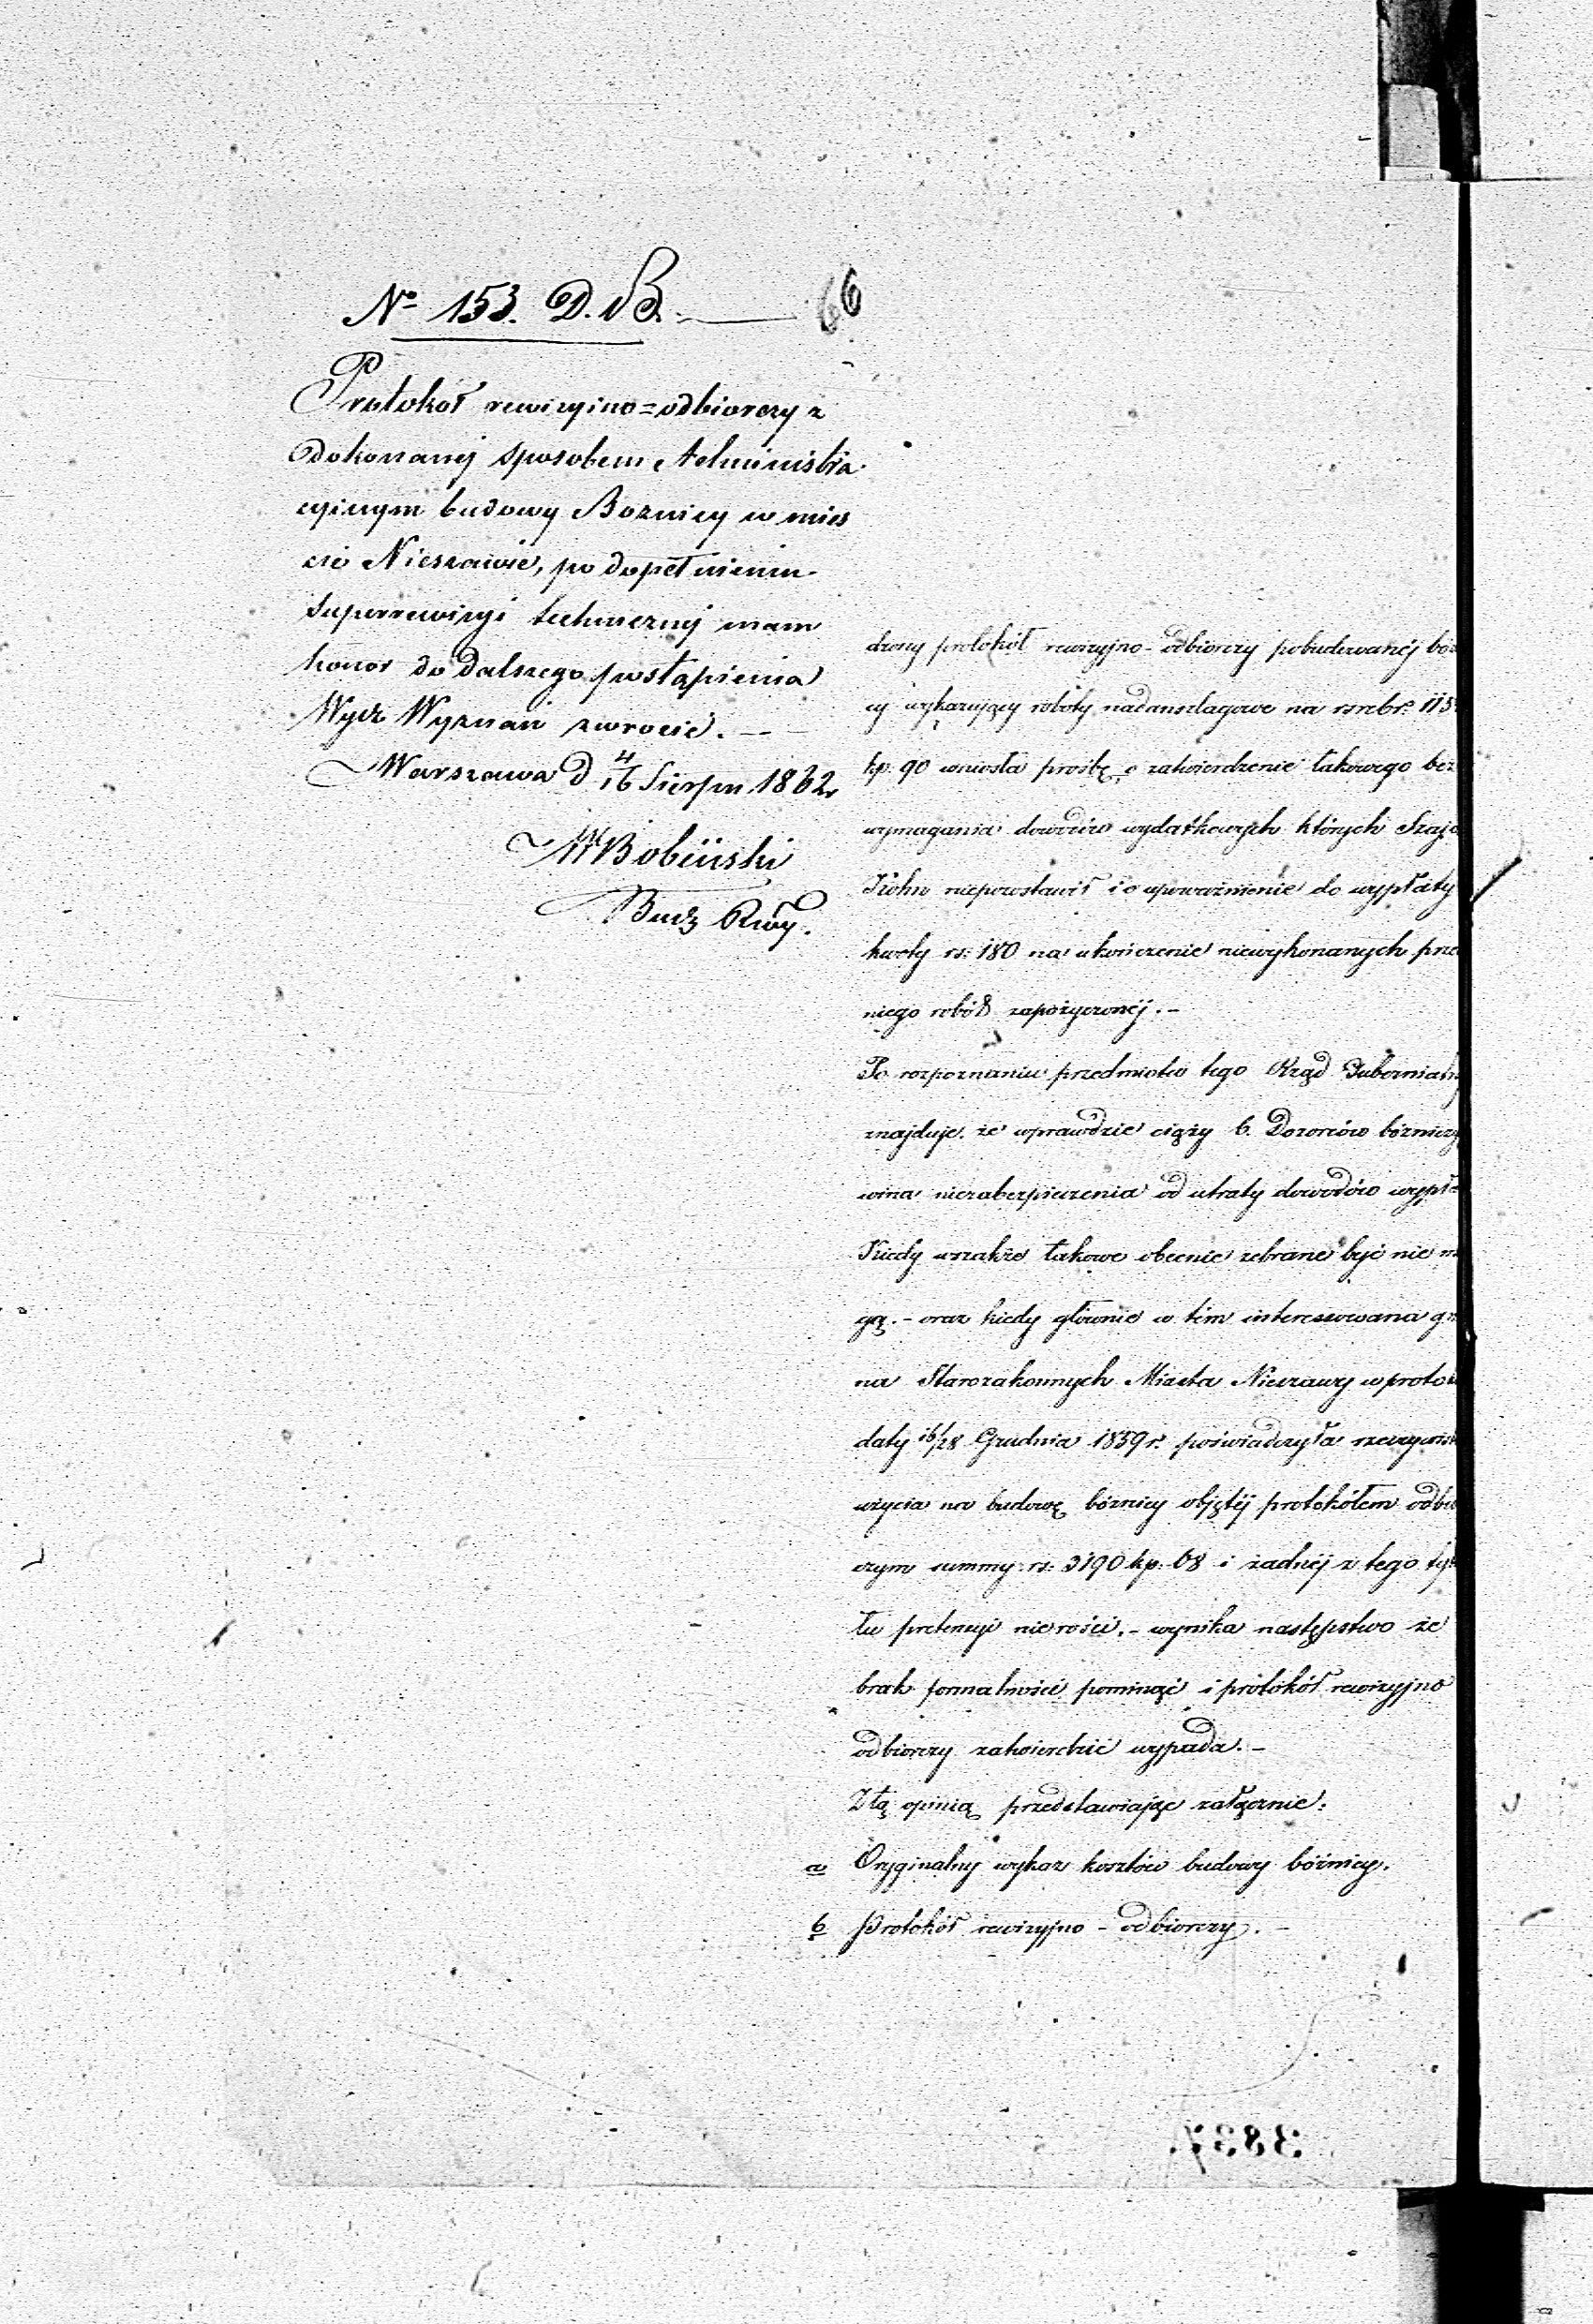 No 153. D. B. — 66
Protokoł rewizyino=odbiorczy z
dokonanej sposobem Administra-
cyinym budowy Boznicy w mieś
cie Nieszawie, po dopełnieniu
superrewizyi technicznej mam
honor do dalszego postąpienia
Wydz Wyznań zwrócić. —
Warszawa d 4/16 Sierpn 1862
Bobiński
Bud: Rząy.
dzony protokół rewizyjno-odbiorczy pobudowanéj bóż
cy wykazujący roboty nadanszlagowe na rsrebr: 115
kp. 90 wniosła prośbę o zatwierdzenie takowego bez
wymagania dowodów wydatkowych których Szaja
Kohn niepozostawił i o upoważnienie do wypłaty
kwoty rs: 180 na ukończenie niewykonanych prze
niego robót zapożyczonéj. -
Po rozpoznaniu przedmiotu tego Rząd Gubernialn
znajduje, że wprawdzie ciąży b. Dozorców bóżnicz
wina niezabezpieczenia od utraty dowodów wypła
Kiedy wszakże takowe obecnie zebrane być nie m
gą. - oraz kiedy głównie w tém interessowana gm
na Starozakonnych Miasta Nieszawy w proto
daty 16/28 Grudnia 1859 r. poświadczyła rzeczywist
użycia na budowę bóżnicy objętéj protokółem odbi
czym summy rs: 3190 kp. 68 i żadnéj z tego ty
tu pretensyi nierości. - wynika następstwo że
brak formalności pominąć i protokół rewizyjno
odbiorczy zatwierdzić wypada. -
Z tą opinią przedstawiając załącznie:
a Oryginalny wykaz kosztów budowy bóżnicy.
b Protokół rewizyjno - odbiorczy. -
3837.